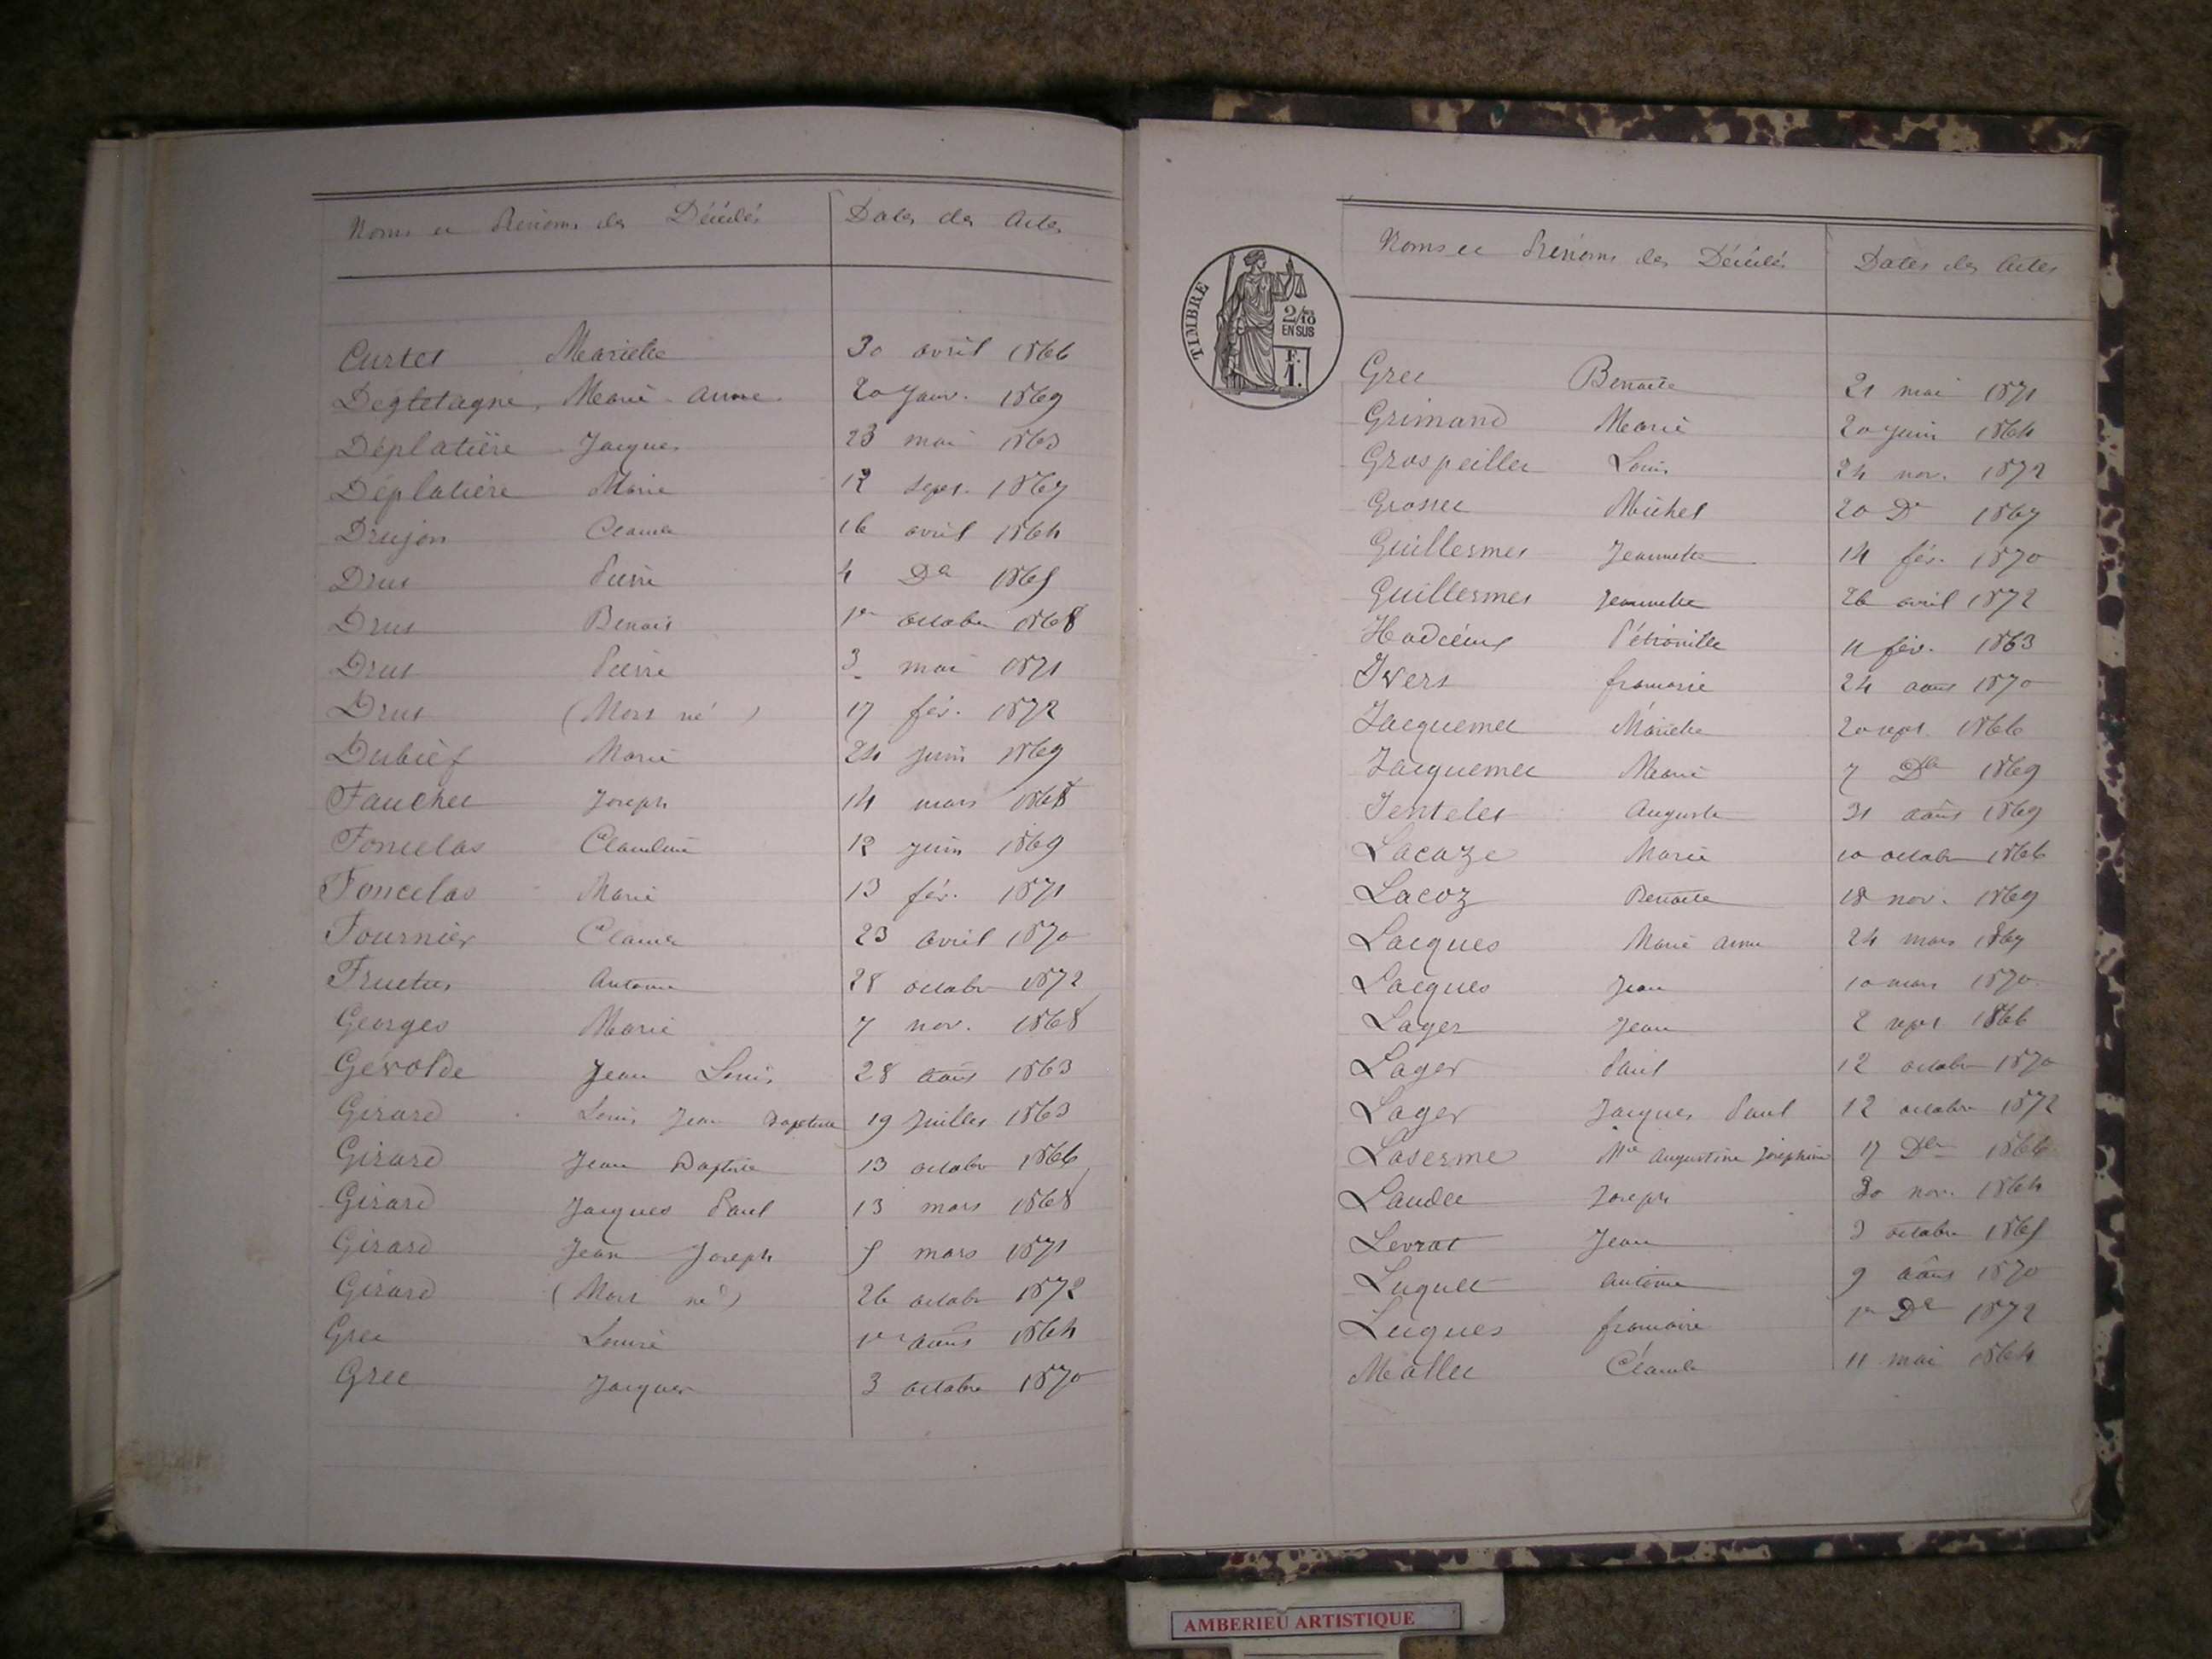 Noms et Prénoms des Décédés Dates des Actes
Curtet Mariette 30 avril 1866
Degletagne, Marie-Anne. 20 Janv. 1869
Déplatière Jacques 23 mai 1863
Déplatière Marie 12 sept. 1867
Drujon Claude 16 avril 1864
Drut Pierre 4 Do 1865
Drut Benoit 1er octobre 1868
Drut Pierre 3 mai 1871
Drut (Mort né) 17 fév. 1872
Dubief Marie 24 juin 1869
Fauchet Joseph 14 mars 1868
Foncelas Claudine 12 juin 1869
Foncelas Marie 13 fév. 1871
Fournier Claude 23 avril 1870
Fructus Antoine 28 octobre 1872
Georges Marie 7 nov. 1868
Gérolde Jean Louis 28 août 1863
Girard Louis Jean Baptiste 19 Juillet 1863
Girard Jean Baptiste 13 octobre 1866
Girard Jacques Paul 13 mars 1868
Girard Jean Joseph 5 mars 1871
Girard (Mort né) 26 octobre 1872
Grec Louise 1er août 1864
Grec Jacques 3 octobre 1870
TIMBRE
2/10
EN SUS
F.
1.
Noms et Prénoms des Décédés Dates des Actes
Grec Benoite 21 mai 1871
Grimand Marie 20 juin 1864
Grospeillet Louis 24 nov. 1872
Grosset Michel 20 Do 1867
Guillermet Jeannette 14 fév. 1870
Guillermet Jeannette 26 avril 1872
Pétronille 11 fév. 1863
Ivert franoise 24 août 1870
Jacquemet Mariette 20 sept 1866
Jacquemet Marie 7 Do 1869
Jentelet Auguste 31 août 1869
Lacaze Marie 10 octobre 1866
Lacoz Benoite 18 nov. 1869
Lacques Marie Anne 24 mars 1867
Lacques Jean 10 mars 1870
Lager Jean 2 sept 1866
Lager Paul 12 octobre 1870
Lager Jacques Paul 12 octobre 1872
Laserme Mie Augustine Joséphine 17 Do 1866
Laudet Joseph 30 nov. 1864
Levrat Jean 3 octobre 1865
Luquet Antoine 9 août 1870
Luques franoise 1er Do 1872
Mallet Claude 11 mai 1864
AMBERIEU ARTISTIQUE